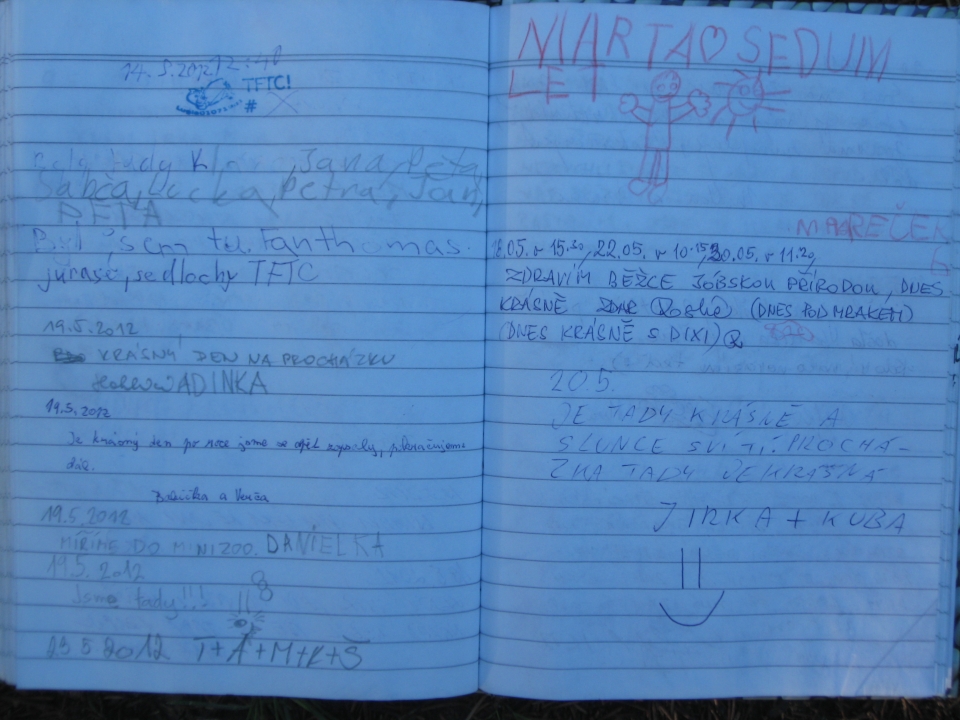 14.5.2012 12:40
TFTC!
#
tudy Jana, Péťa
Sabča, Lucka, Petra, Jan,
PÉŤA
Byl jsem tu. Fanthomas.
juraso, sedlochy TFTC
19.5.2012
KRÁSNÝ DEN NA PROCHÁZKU
ADINKA
19.5.2012
Je krásný den po roce jsme se opět zapsaly, pokračujeme
dále.
Babička a Verča
19.5.2012
MÍŘÍME DO MINIZOO. DANIELKA
19.5.2012
Jsme tady!!!
23 5 2012 T+A+M+K+Š
MARTA SEDUM
LET
MAREČEK
6
18.05. v 15.30, 22.05. v 10.15, 30.05. v 11.20
ZDRAVÍM BĚŽCE PŘÍRODOU, DNES
KRÁSNĚ ZDAR (DNES POD MRAKEM)
(DNES KRÁSNĚ S DIXI)
20.5.
JE TADY KRÁSNĚ A
SLUNCE SVÍTÍ. PROCHÁ-
ZKA TADY JE KRÁSNÁ
JIRKA + KUBA